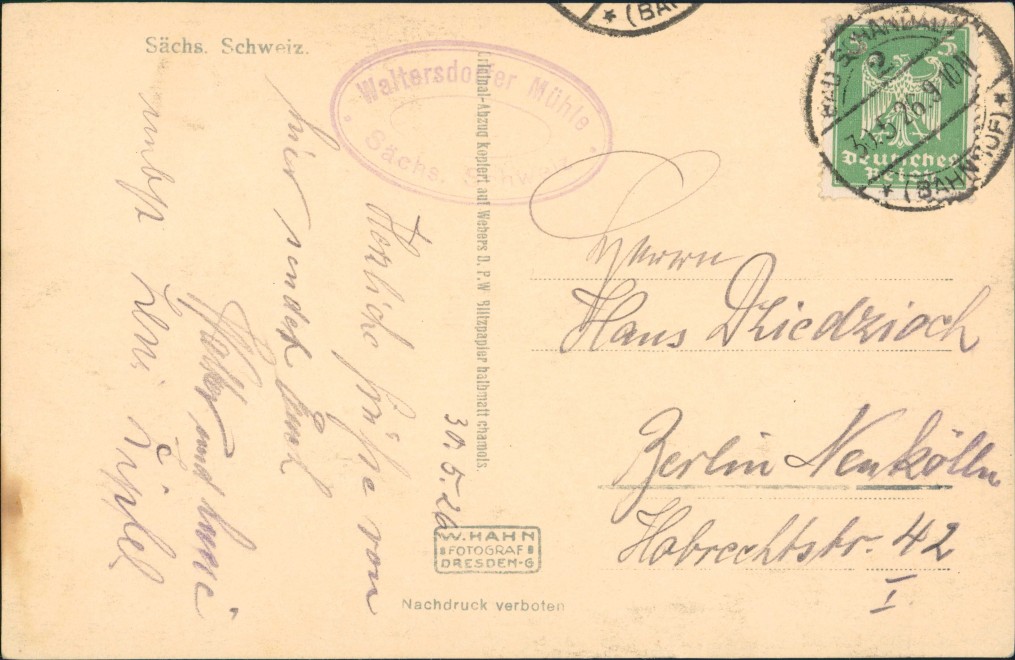 Sächs. Schweiz.
Waltersdorfer Mühle
Sächs. Schweiz
BAD SCHANDAU
2
30.5.26.9-10N
* (BAHNHOF) *
* (BA
5
Deutsches
Reich
Original-Abzug kopiert auf Webers D.P.W Blitzpapier halbmatt chamois.
30.5.26
Herzliche Grüße von
hier sendet Euch
und
nebst
Herrn
Hans Dziedzioch
Berlin Neukölln
Hobrechtstr. 42
I
W. HAHN
FOTOGRAF
DRESDEN-G
Nachdruck verboten